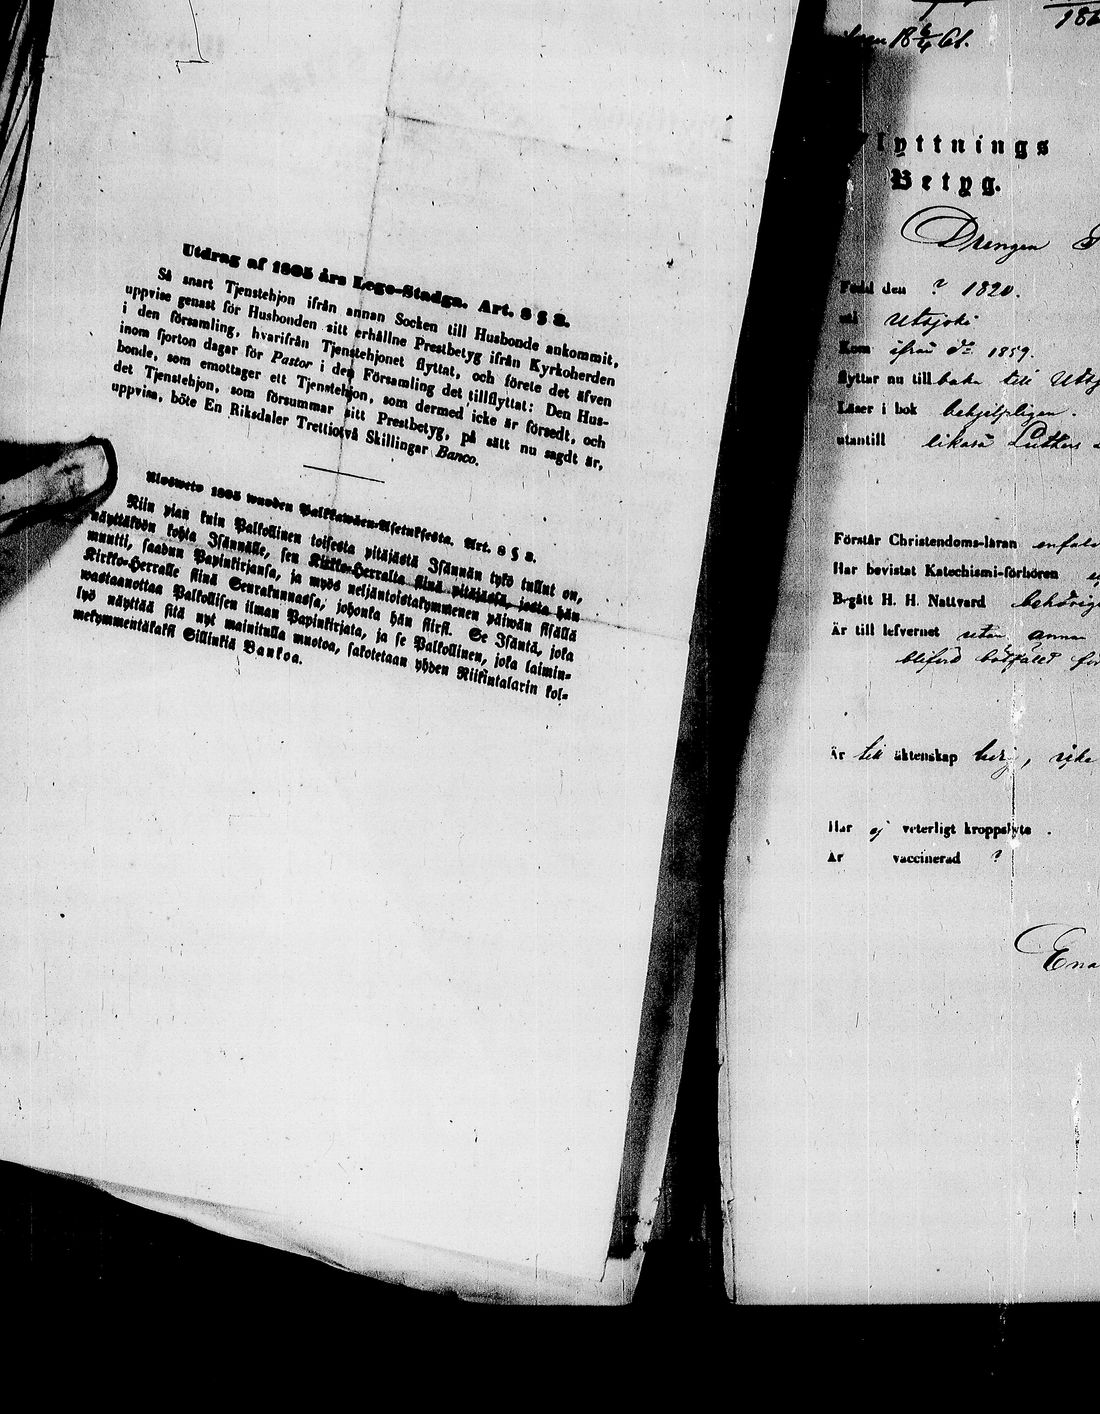 Utdrag af 1805 års Lego-Stadga. Art. 8 § 8.
Så snart Tjenstehjon ifrån annan Socken till Husbonde ankommit,
uppvise genast för Husbonden sitt erhållne Prestbetyg ifrån Kyrkoherden
i den församling, hvarifrån Tjenstehjonet flyttat, och förete det äfven
inom fjorton dagar för Pastor i den Församling det tillflyttat: Den Hus-
bonde, som emottager ett Tjenstehjon, som dermed icke är försedt, och
det Tjenstehjon, som försummar sitt Prestbetyg, på sätt nu sagdt är,
uppvisa, böte En Riksdaler Trettiotvå Skillingar Banco.
Ulosweto 1805 wuoden Palkkawäen-Asetuksesta. Art. 8 § 8.
Niin pian kuin Palkollinen toisesta pitäjästä Isännän tykö tullut on,
näyttäköön kohta Isännälle, sen Kirkko-Herralta siinä pitäjässä, josta hän
muutti, saadun Papinkirjansa, ja myös neljäntoistakymmenen päiwän sisällä
Kirkko-Herralle siinä Seurakunnassa, johonka hän siirsi. Se Isäntä, joka
wastaanottaa Palkollisen ilman Papinkirjata, ja se Palkollinen, joka laimin-
lyö näyttää sitä nyt mainitulla muotoa, sakotetaan yhden Riikintalarin kol-
mekymmentäkaksi Sillinkiä Bankoa.
18 6/4 61.
Flyttnings
Betyg.
Drengen
Född den ? 1820.
Utsjoki
Kom ifrån d:o 1859.
flyttar nu tillbaka till Utsj
Läser i bok behjelpligen.
utantill likaså Luthers
Förstår Christendoms-läran enfald
Har bevistat Katechismi-förhören
Begått H. H. Nattvard behörige
Är till lefvernet utan anm
blifvid bötfälld för
Är till äktenskap ledig, icke
Har ej veterligt kroppslyte.
Är vaccinerad ?
Ena